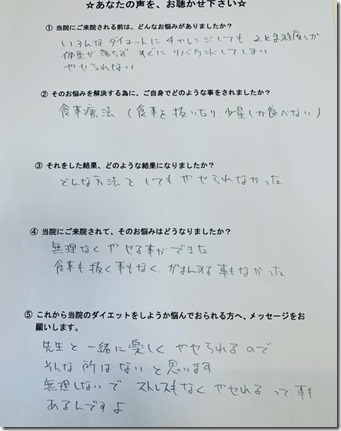 ☆あなたの声を、お聴かせ下さい☆
① 当院にご来院される前は、どんなお悩みがありましたか？
いろんなダイエットにチャレンジしても 2kg程度しか
体重が落ちず すぐに リバウンドしてしまい
やせられない
② そのお悩みを解決する為に、ご自身でどのような事をされましたか？
食事療法 (食事を抜いたり、少量しか食べない)
③ それをした結果、どのような結果になりましたか？
どんな方法をしても やせられなかった
④ 当院にご来院されて、そのお悩みはどうなりましたか？
無理なく やせる事ができた
食事も抜く事もなく、がまんする事もなかった
⑤ これから当院のダイエットをしようか悩んでおられる方へ、メッセージをお
願いします。
先生と一緒に楽しく やせられるので
そんな所はないと思います
無理しないで ストレスもなく やせれる って事も
あるんですよ